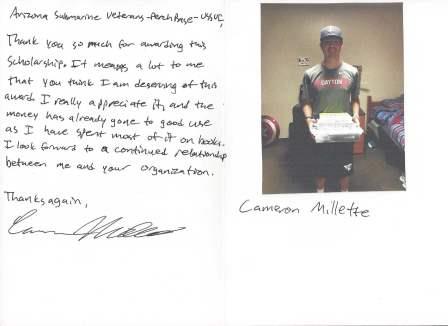 Arizona Submarine Veterans-Perch Base-USSVI,
Thank you so much for awarding this
Scholarship. It means a lot to me
that you think I am deserving of this
award I really appreciate it, and the
money has already gone to good use
as I have spent most of it on books.
I look forward to a continued relationship
between me and your organization.
Thanks again,
DAYTON
Cameron Millette